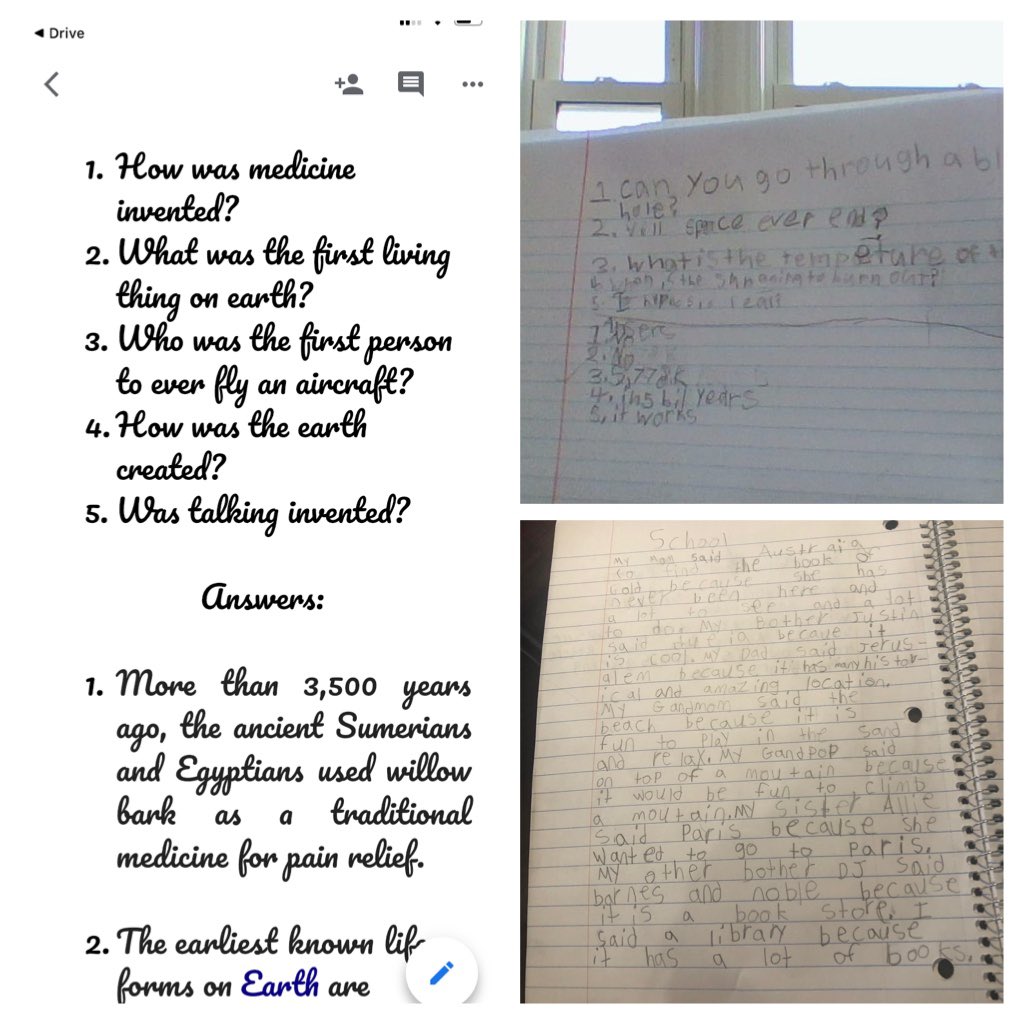 Drive
1. How was medicine
invented?
2. What was the first living
thing on earth?
3. Who was the first person
to ever fly an aircraft?
4. How was the earth
created?
5. Was talking invented?
Answers:
1. More than 3,500 years
ago, the ancient Sumerians
and Egyptians used willow
bark as a traditional
medicine for pain relief.
2. The earliest known life
forms on Earth are
1. can you go through a bl
hole?
2. will space ever end?
3. what is the tempeture of
4. when is the sun going to burn out?
5. I
1.
2. No
3. 5,778k
4. in 5 bil years
5. it works
School
My mom said Austraia
to find the book of
cold because she has
never been here and
a lot to see and a lot
to do. My Bother Justin
said because it
is cool. My Dad said Jerus-
alem because it has many histor-
ical and amazing location.
My Gandmom said the
beach because it is
fun to play in the sand
and relax. My Gandpop said
on top of a moutain because
it would be fun to climb
a moutain. My sister Allie
said Paris because she
wanted to go to Paris.
My other bother DJ said
barnes and noble because
it is a book store. I
said a library because
it has a lot of books.